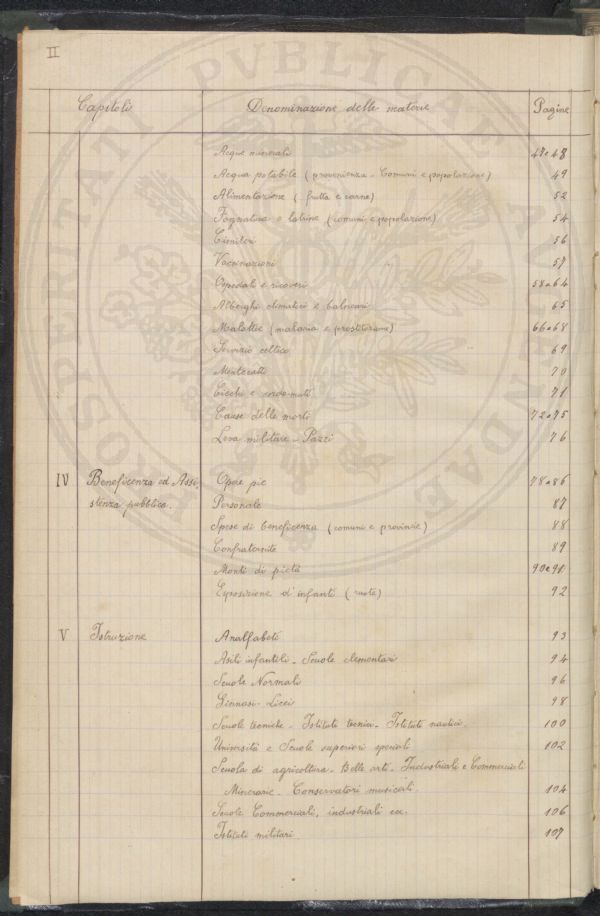 II
Capitoli Denominazione delle materie Pagine
Acque minerali 47 e 48
Acqua potabile (provenienza - Comuni e popolazione) 49
Alimentazione (frutta e carne) 52
Fognatura e latrine (comuni e popolazione) 54
Cimiteri 56
Vaccinazioni 57
Ospedali e ricoveri 58 a 64
Alberghi climatici e balneari 65
Malattie (malaria e prostituzione) 66 a 68
Servizio celtico 69
Mentecatti 70
Ciechi e sordo-muti 71
Cause delle morti 72 a 75
Leva militare - Pazzi 76
IV Beneficenza ed Assi- Opere pie 78 a 86
stenza pubblica. Personale 87
Spese di beneficenza (comuni e provincie) 88
Confraternite 89
Monti di pietà 90 e 91
Esposizione d'infanti (ruote) 92
V Istruzione Analfabeti 93
Asili infantili - Scuole elementari 94
Scuole Normali 96
Ginnasi - Licei 98
Scuole tecniche - Istituti tecnici - Istituti nautici. 100
Università e Scuole superiori speciali 102
Scuola di agricoltura - Belle arti - Industriali e Commerciali
Minerarie - Conservatori musicali. 104
Scuole Commerciali, industriali ecc. 106
Istituti militari. 107
PROSPERITATI PVBLICAE AVGENDAE